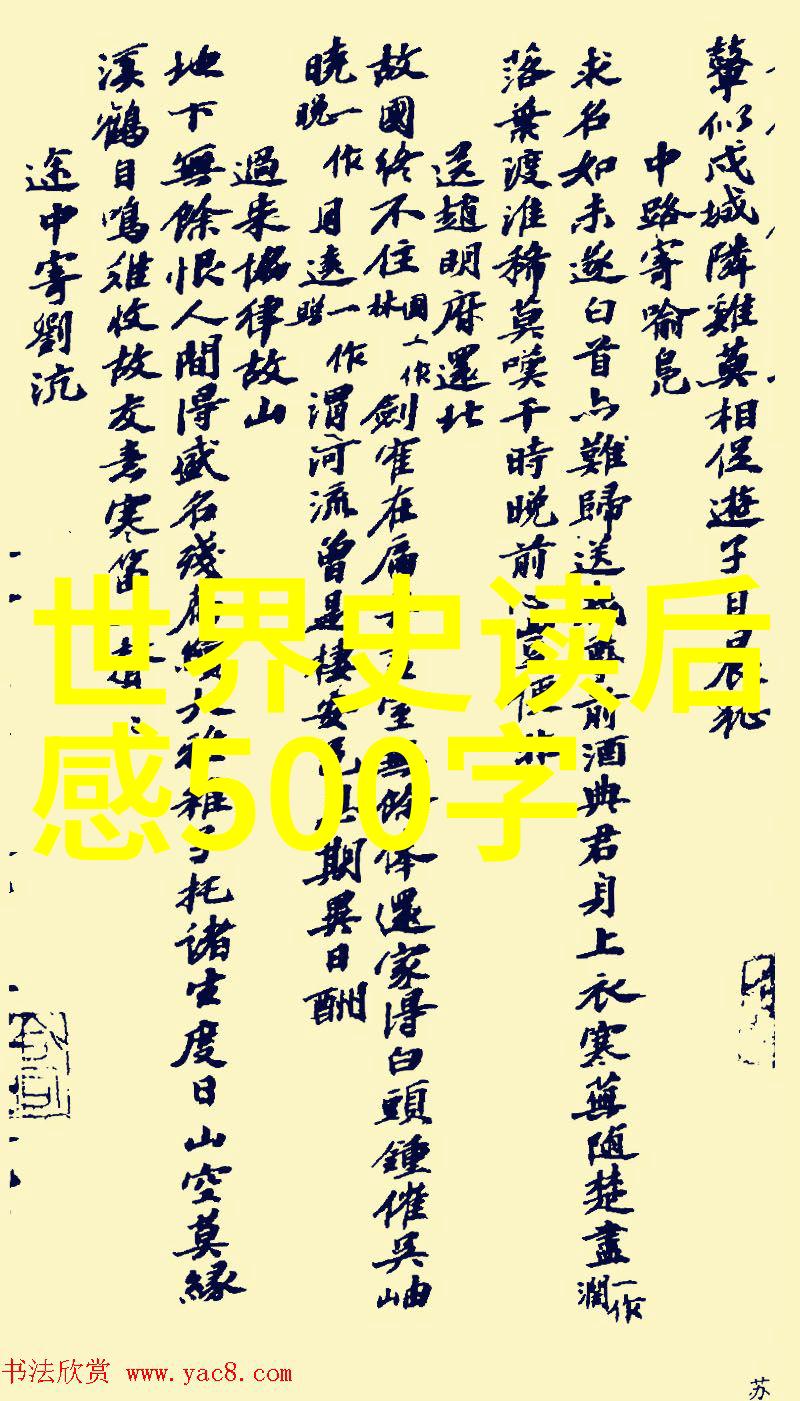 似戍城隣雞莫相促遊子
中路寄喻鳧
求名如未遂白首亦難歸送前酒典君身上衣寒蕪隨楚盡一作澗
落葉渡淮稀莫嘆干時晚前心豈便非
送趙明府還北
故國終不住國一作林劍在扁無餘俸還家得白頭鍾催吳岫
曉一作晚月遠一作渭河流曾是棲安邑期異日酬
過朱協律故山
地下無餘恨人間得盛名殘續大雅稚子托諸生度日山空莫緣
溪鶴自鳴難收故友意寒
途中寄劉沆
世界史读后
感500字
书法欣赏 www.yac8.com
苏